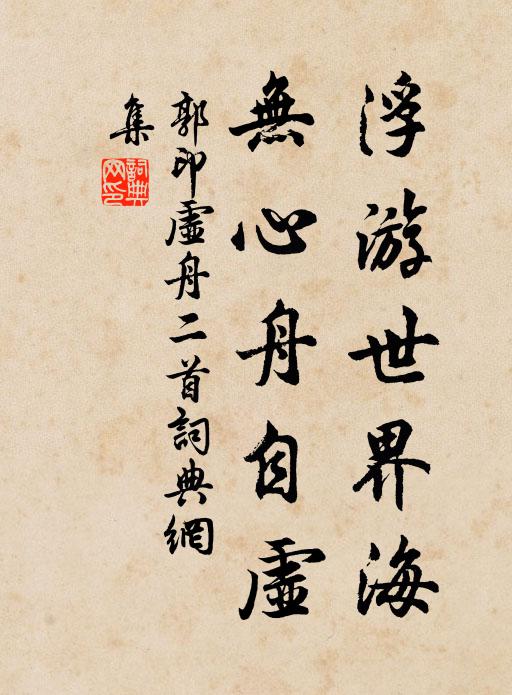 浮游世界海
無心舟自虛
郭印虛舟二首詞典網
集
詞典网印